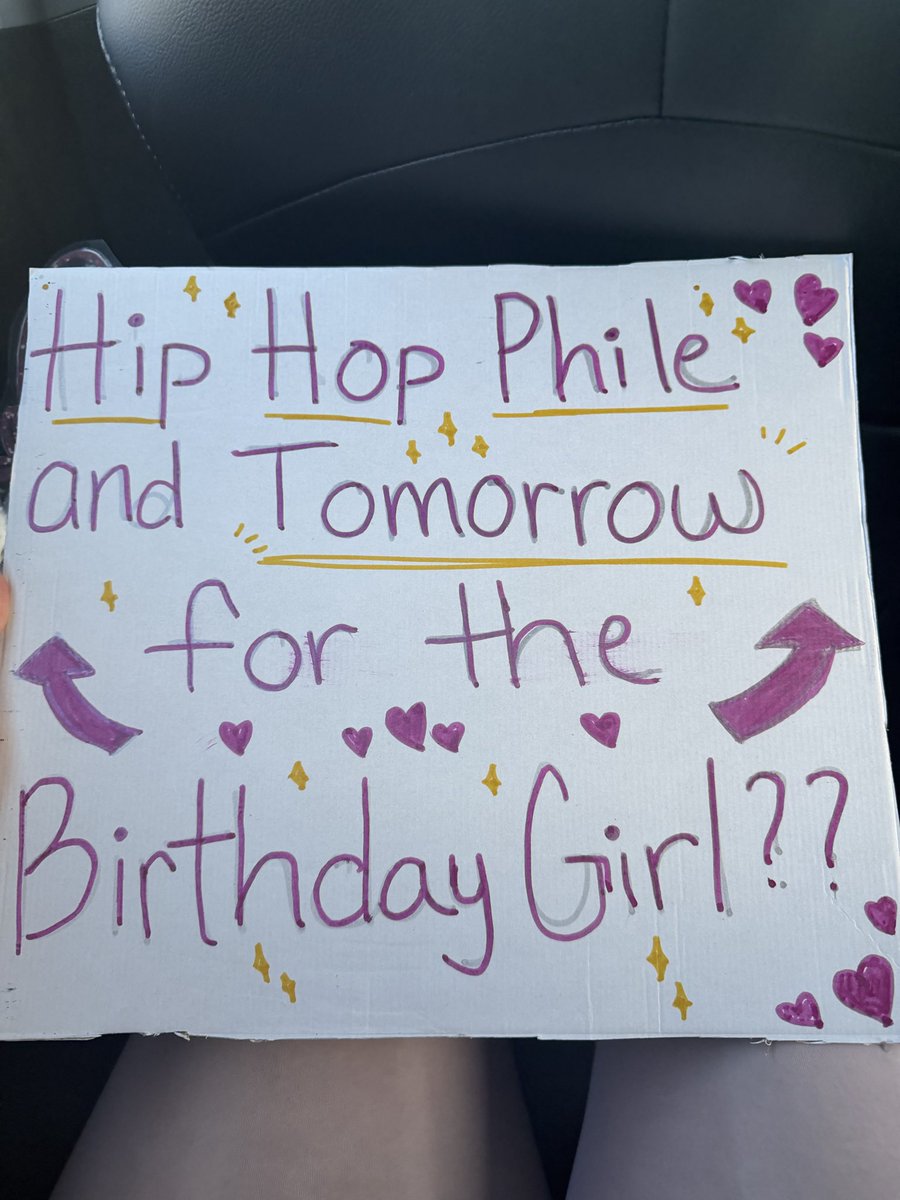 Hip Hop Phile
and Tomorrow
for the
Birthday Girl??